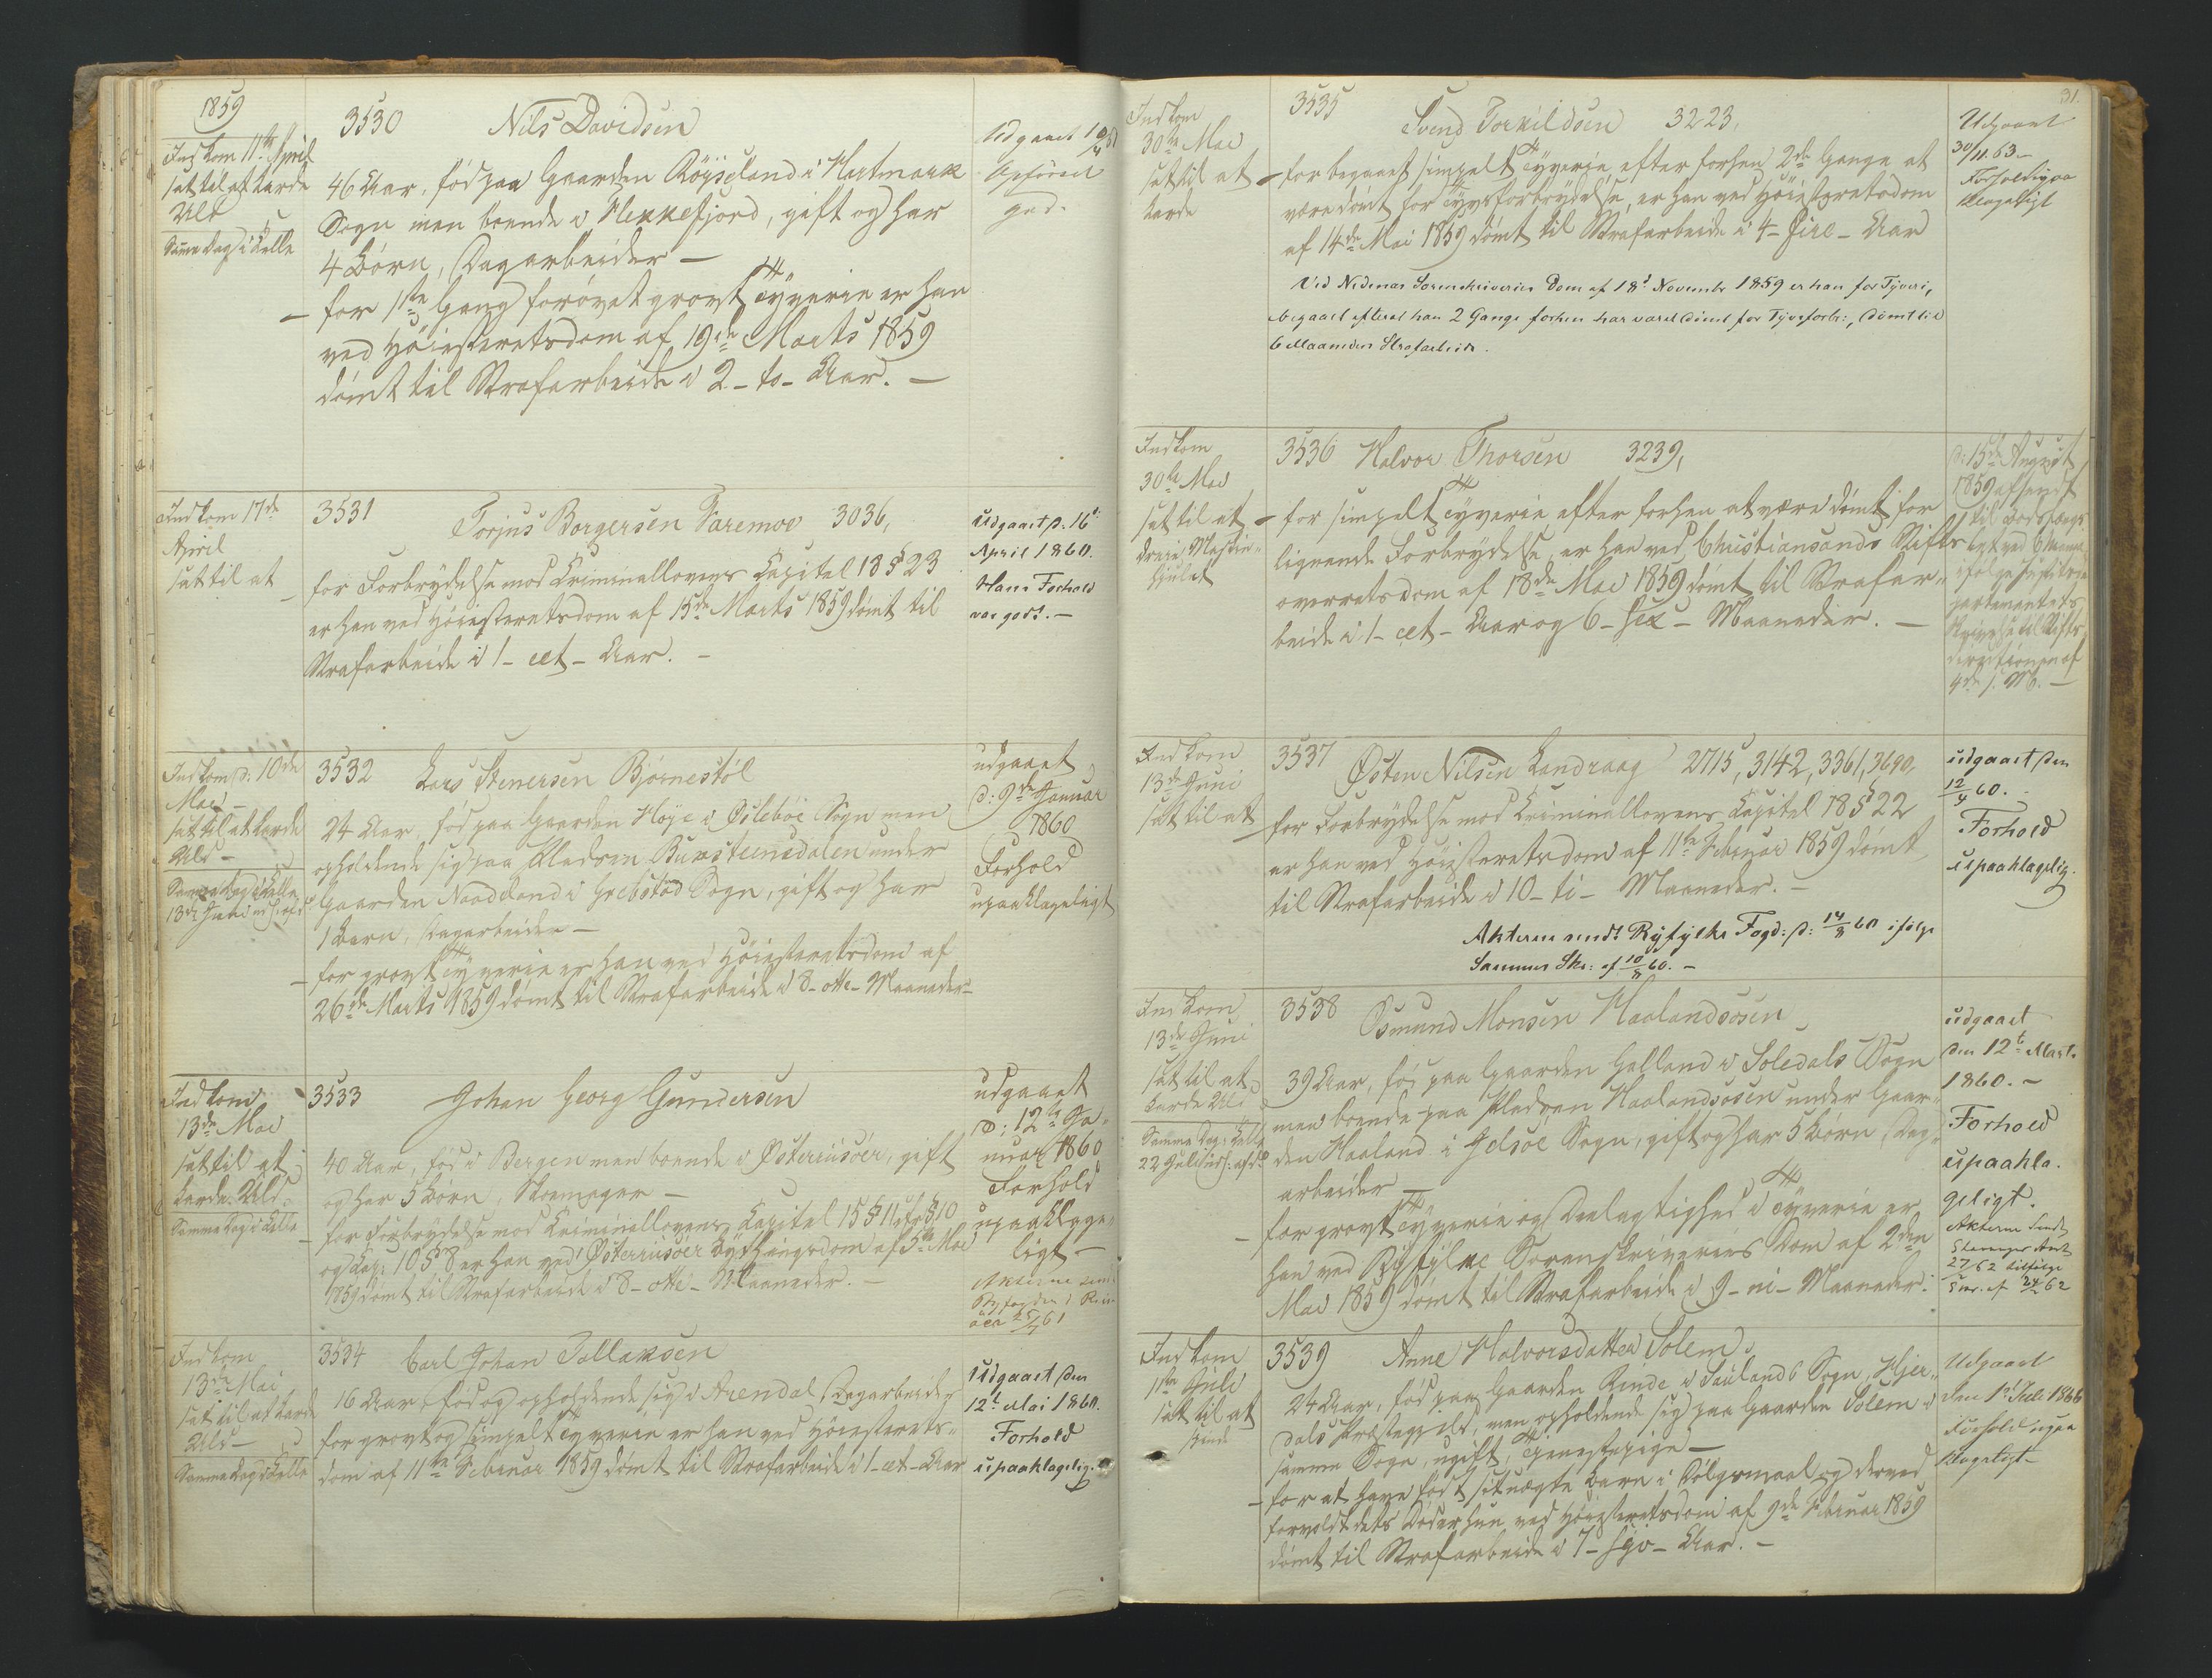 1859
Indkom 11te April
sat til at karde
Uld
Samme Dag i Celle
3530 Nils Davidsen
46 Aar, fød paa Gaarden Röiseland i Hartmark
Sogn men boende i Flekkefjord, gift og har
4 Børn, Dagarbeider –
– for 1ste Gang forøvet grovt Tyverie er han
ved Høiesteretsdom af 19de Marts 1859
dømt til Strafarbeide i 2 – to – Aar. –
Udgaaet
Opførsel
god.
Indkom 17de
April
sat til at
3531 Torjus Borgersen Varemoe 3036,
– for Forbrydelse mod Criminallovens Capitel 18 § 23
er han ved Høiesteretsdom af 15de Marts 1859 dømt til
Strafarbeide i 1 – et – Aar. –
udgaaet d. 16d
April 1860.
Hans Forhold
var godt. –
Indkom d: 10de
Mai –
sat til at karde
Uld –
Samme Dag i Celle
13de Juni
3532 Lars Stenersen Bjørnestøl
24 Aar, fød paa Gaarden Høje i Øslebøe Sogn men
opholdende sig paa Pladsen Buxsteensdalen under
Gaarden Naadeland i Grebstad Sogn, gift og har
1 Barn, Dagarbeider –
– for grovt Tyverie er han ved Høiesteretsdom af
26de Marts 1859 dømt til Strafarbeide i 8 – otte – Maaneder –
udgaaet
d: 9de Januar
1860
Forhold
upaaklageligt
Indkom
13de Mai
sat til at
karde Uld.
Samme Dag i Celle
3533 Johan Georg Gundersen
40 Aar, fød i Bergen men boende i Østerriisøer, gift
og har 5 Børn, Skomager –
– for Forbrydelse mod Criminallovens Capitel 15 § 11 cfr § 10
og Cap: 10 § 8 er han ved Østerriisøer Bythingsdom af 5te Mai
1859 dømt til Strafarbeide i 8 – otte – Maaneder. –
udgaaet
d: 12te Ja-
nuar 1860
Forhold
upaaklage-
ligt –
Akterne send
Byfogden i Riis-
øer 25/7 61
Indkom
13de Mai
sat til at karde
Uld –
Samme Dag i Celle
3534 Carl Johan Tollaksen
16 Aar, fød og opholdende sig i Arendal, Dagarbeider
for grovt og simpelt Tyverie er han ved Høiesterets-
dom af 11te Februar 1859 dømt til Strafarbeide i 1 – et – Aar
Udgaaet den
12t Mai 1860.
Forhold
upaaklagelig.
31.
Indkom
30te Mai
sat til at
karde
3535 Svend Torkildsen 3223,
– for begaaet simpelt Tyverie efter forhen 2de Gange at
være dømt for Tyvsforbrydelse, er han ved Høiesteretsdom
af 14de Mai 1859 dømt til Strafarbeide i 4 – fire – Aar
Ved Nedenæs Sorenskriveries Dom af 18d November 1859 er han for Tyveri,
begaaet efterat han 2 Gange forhen har været dömt for Tyvsforb:, dömt til
6 Maaneders Strafarbeide.
Udgaaet
30/11. 63 –
Forhold upaa
klageligt
Indkom
30te Mai
sat til at
dreie Maskin-
hjulet
3536 Halvor Thorsen 3239,
– for simpelt Tyverie efter forhen at være dømt for
lignende Forbrydelse, er han ved Christiansands Stifts
overretsdom af 18de Mai 1859 dømt til Strafar-
beide i 1 – et – Aar og 6 – sex – Maaneder. –
d: 15de August
1859 afsendt
til Bodsfængs-
let ved Christiania
ifølge Justitsde-
partementets
Skrivelse til Stifts-
directionen af
4de s. M. –
Indkom
13de Juni
sat til at
3537 Østen Nilsen Landraag 2715, 3142, 3361, 3690,
– for Forbrydelse mod Criminallovens Capitel 18 § 22
er han ved Høiesteretsdom af 11te Februar 1859 dømt
til Strafarbeide i 10 – ti – Maaneder. –
Akterne sendt Ryfylke Fogd: d: 14/8 60 ifølge
Sammes Skr: af 10/8 60. –
udgaaet den
12/4 60.
Forhold
upaaklagelig.
Indkom
13de Juni
sat til at
karde Uld
Samme Dag i Celle
22 Juli
3538 Osmund Monsen Haalandsosen
39 Aar, fød paa Gaarden Galland i Soledals Sogn
men boende paa Pladsen Haalandsosen under Gaar-
den Haaland i Jelsøe Sogn, gift og har 5 Børn, Dag-
arbeider –
– for grovt Tyverie og Deelagtighed i Tyverie er
han ved Ryfylke Sorenskriveries Dom af 2den
Mai 1859 dømt til Strafarbeide i 9 – ni – Maaneder.
udgaaet
den 12t Marts
1860. –
Forhold
upaakla-
geligt.
Akterne sendt
Stavanger Amt
27/ 62 ifølge
Skr. af 24/ 62
Indkom
11te Juli
sat til at
spinde
3539 Anne Halvorsdatter Solem
24 Aar, fød paa Gaarden Rinde i Sauland Sogn, Hjer-
dals Præstegjeld, men opholdende sig paa Gaarden Solem i
samme Sogn, ugift, Tjenestepige –
– for at have født sit uægte Barn i Dølgsmaal og derved
forvoldt dets Død er hun ved Høiesteretsdom af 9de Februar 1859
dømt til Strafarbeide i 7 – syv – Aar. –
Udgaaet
den 1s Juli 1866
Forhold upaa
klageligt –